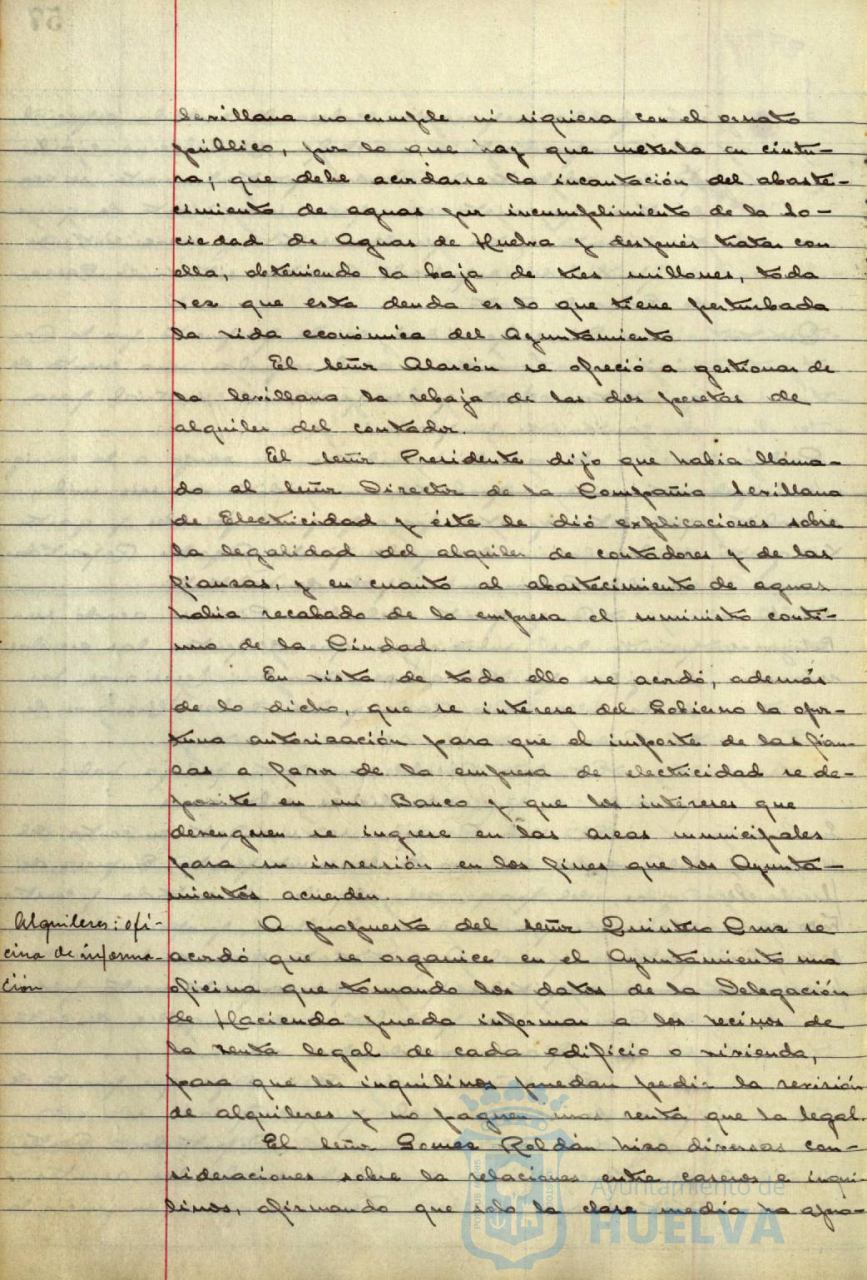 Sevillana no cumple ni siquiera con el ornato
público, por lo que hay que meterla en cintu-
ra; que debe acordarse la incautación del abaste-
cimiento de aguas por incumplimiento de la So-
ciedad de Aguas de Huelva y después tratar con
ella, obteniendo la baja de tres millones, toda
vez que esta deuda es lo que tiene perturbada
la vida económica del Ayuntamiento
El Señor Alarcón se ofreció a gestionar de
la Sevillana la rebaja de las dos pesetas de
alquiler del contador.
El Señor Presidente dijo que había llama-
do al Señor Director de la Compañia Sevillana
de Electricidad y éste le dió explicaciones sobre
la legalidad del alquiler de contadores y de las
fianzas, y en cuanto al abastecimiento de aguas
habia recabado de la empresa el suministo conti-
nuo de la Ciudad.
En vista de todo ello se acordó, además
de lo dicho, que se interese del Gobierno la opor-
tuna autorización para que el importe de las fian-
zas a favor de la empresa de electricidad se de-
posite en un Banco y que los intereses que
devenguen se ingrese en las arcas municipales
para su inversión en los fines que los Ayunta-
mientos acuerden.
Alquileres: ofi-
cina de informa-
ción
A propuesta del señor Quintero Cruz se
acordó que se organice en el Ayuntamiento una
oficina que tomando los datos de la Delegación
de Hacienda pueda informar a los vecinos de
la renta legal de cada edificio o vivienda,
para que los inquilinos puedan pedir la revisión
de alquileres y no paguen mas renta que la legal.
El Señor Gomez Roldán hizo diversas con-
sideraciones sobre la relaciones entre caseros e inqui-
linos, afirmando que solo la clase media ha apro-
Ayuntamiento de
HUELVA